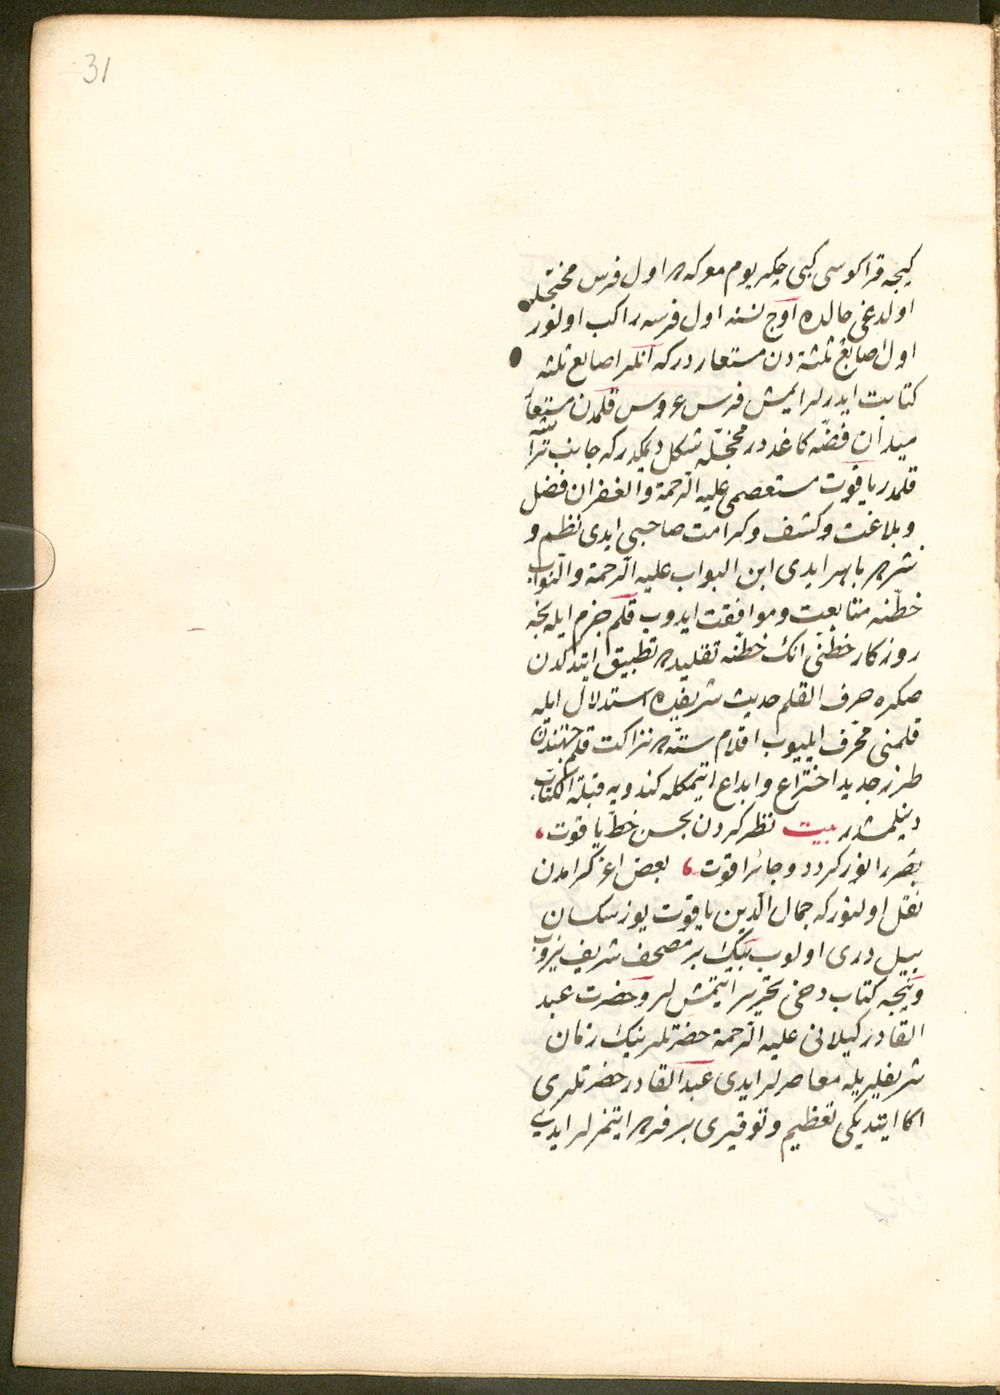 31
كيجه قراكوسى كبى چكر يوم موكه در اول فرس محجله
اولدغى حالده اوج نسنه اول فرسه راكب اولنور
اول اصابع ثلثه دن مستعاردركه انلر اصابع ثلثه
كتابت ايدرلرايمش فرس عروس قلمدن مستعار
ميدان فضّه كاغددر محجّله شكل ديمكدركه جانب تراشه
قلمدر ياقوت مستعصمى عليه الرّحمة والغفران فضل
وبلاغت وكشف وكرامت صاحبى ايدى نظم و
نثرده باهر ايدى ابن البواب عليه الرّحمة والثواب
خطّنه متابعت وموافقت ايدوب قلم جزم ايله نجه
روزكار خطّنى انك خطّنه تقليده تطبيق ايتدكدن
صكره حرف القلم حديث شريفيده استدلال ايله
قلمنى محرّف ايليوب اقلام ستّه ده نزاكت قلم جهتندن
طرز جديد اختراع وابداع ايتمكله كندويه قبلة الكتاب
دينلمشدر بيت نظر كردن بحسن خطّ ياقوت،
بصر را نور كردد و جانرا قوت، بعض اعزّ كرامدن
نقل اولنوركه جمال الدّين ياقوت يوز سكسان
ييل درى اولوب بيك بر مصحف شريف يزوب
ونيجه كتاب دخى تحرير ايتمشلر وحضرت عبد
القادر كيلانى عليه الرّحمة حضرتلرينك زمان
شريفليريله معاصرلر ايدى عبد القادر حضرتلرى
اكا ايتديكى تعظيم وتوقيرى بر فرده ايتمزلر ايدى